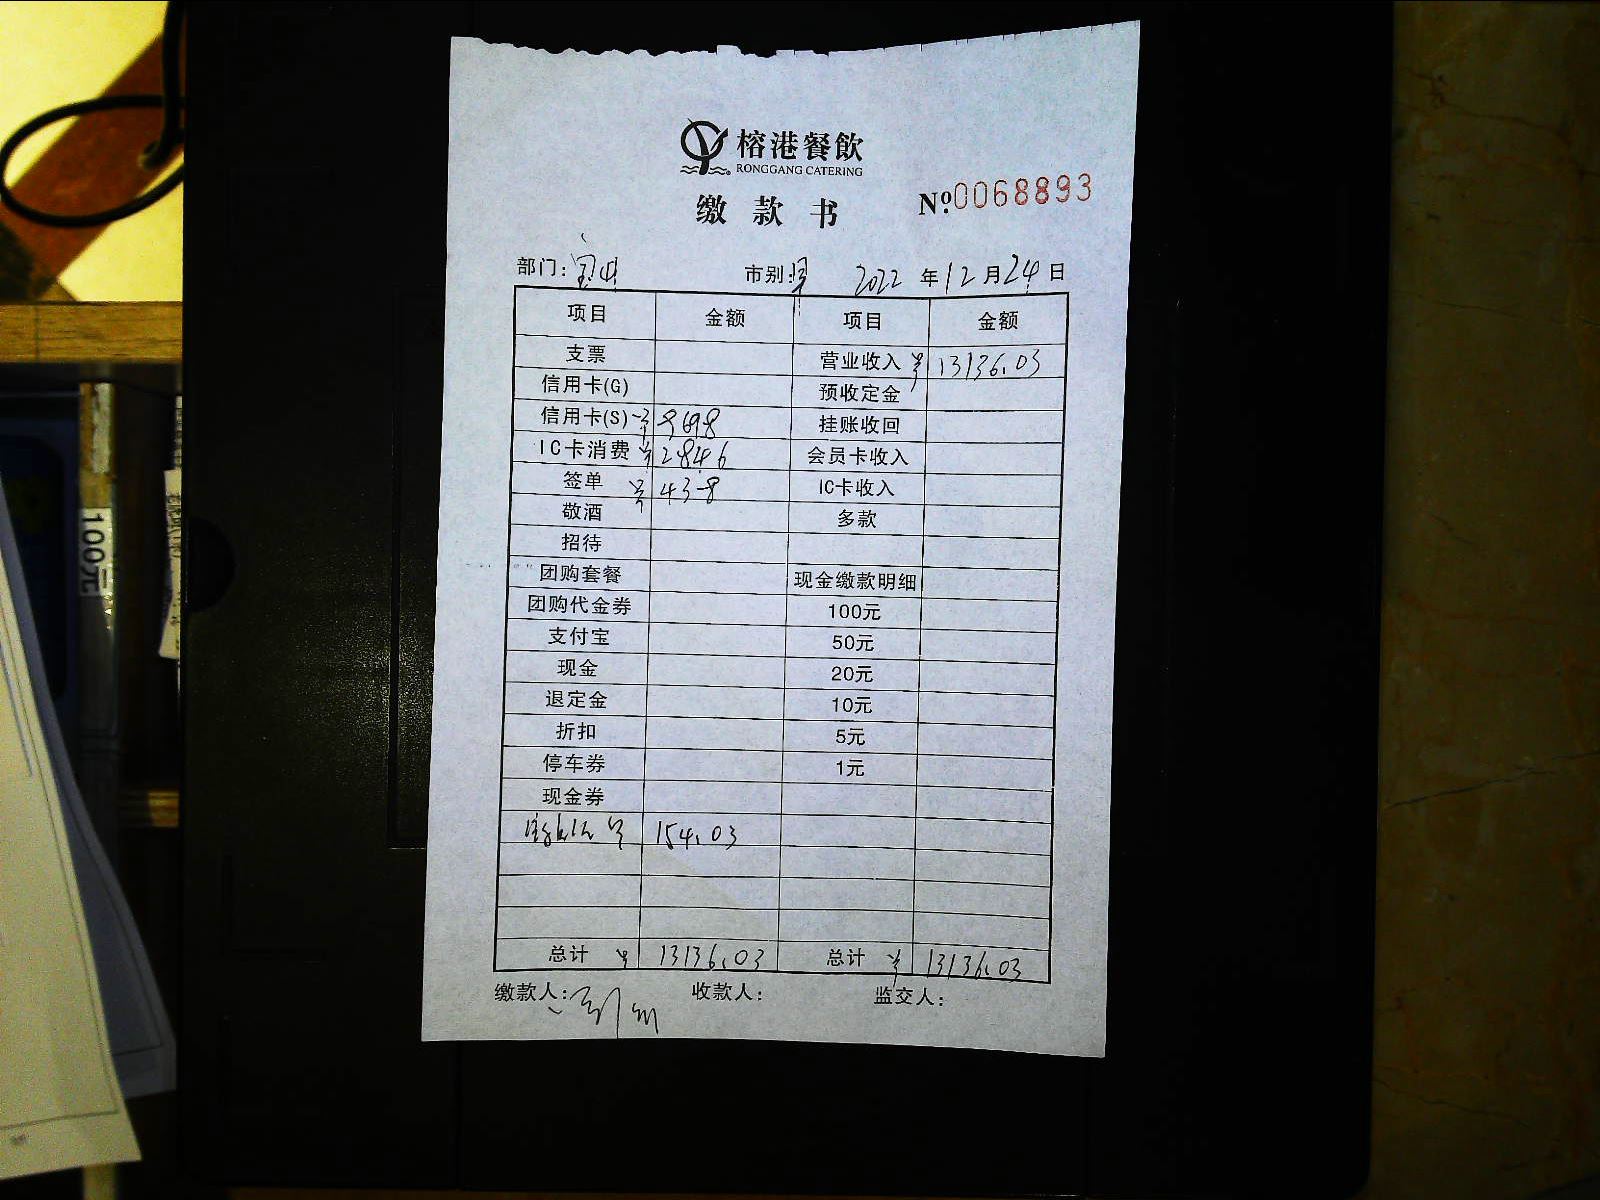 榕港餐飲
RONGGANG CATERING
缴款书 №0068893
部门: 市别: 2022 年 12 月 24 日
项目 金额 项目 金额
支票 营业收入 13136.03
信用卡(G) 预收定金
信用卡(S) 9698 挂账收回
IC卡消费 2846 会员卡收入
签单 438 IC卡收入
敬酒 多款
招待
团购套餐 现金缴款明细
团购代金券 100元
支付宝 50元
现金 20元
退定金 10元
折扣 5元
停车券 1元
现金券
154.03
总计 13136.03 总计 13136.03
缴款人: 收款人: 监交人:
100元